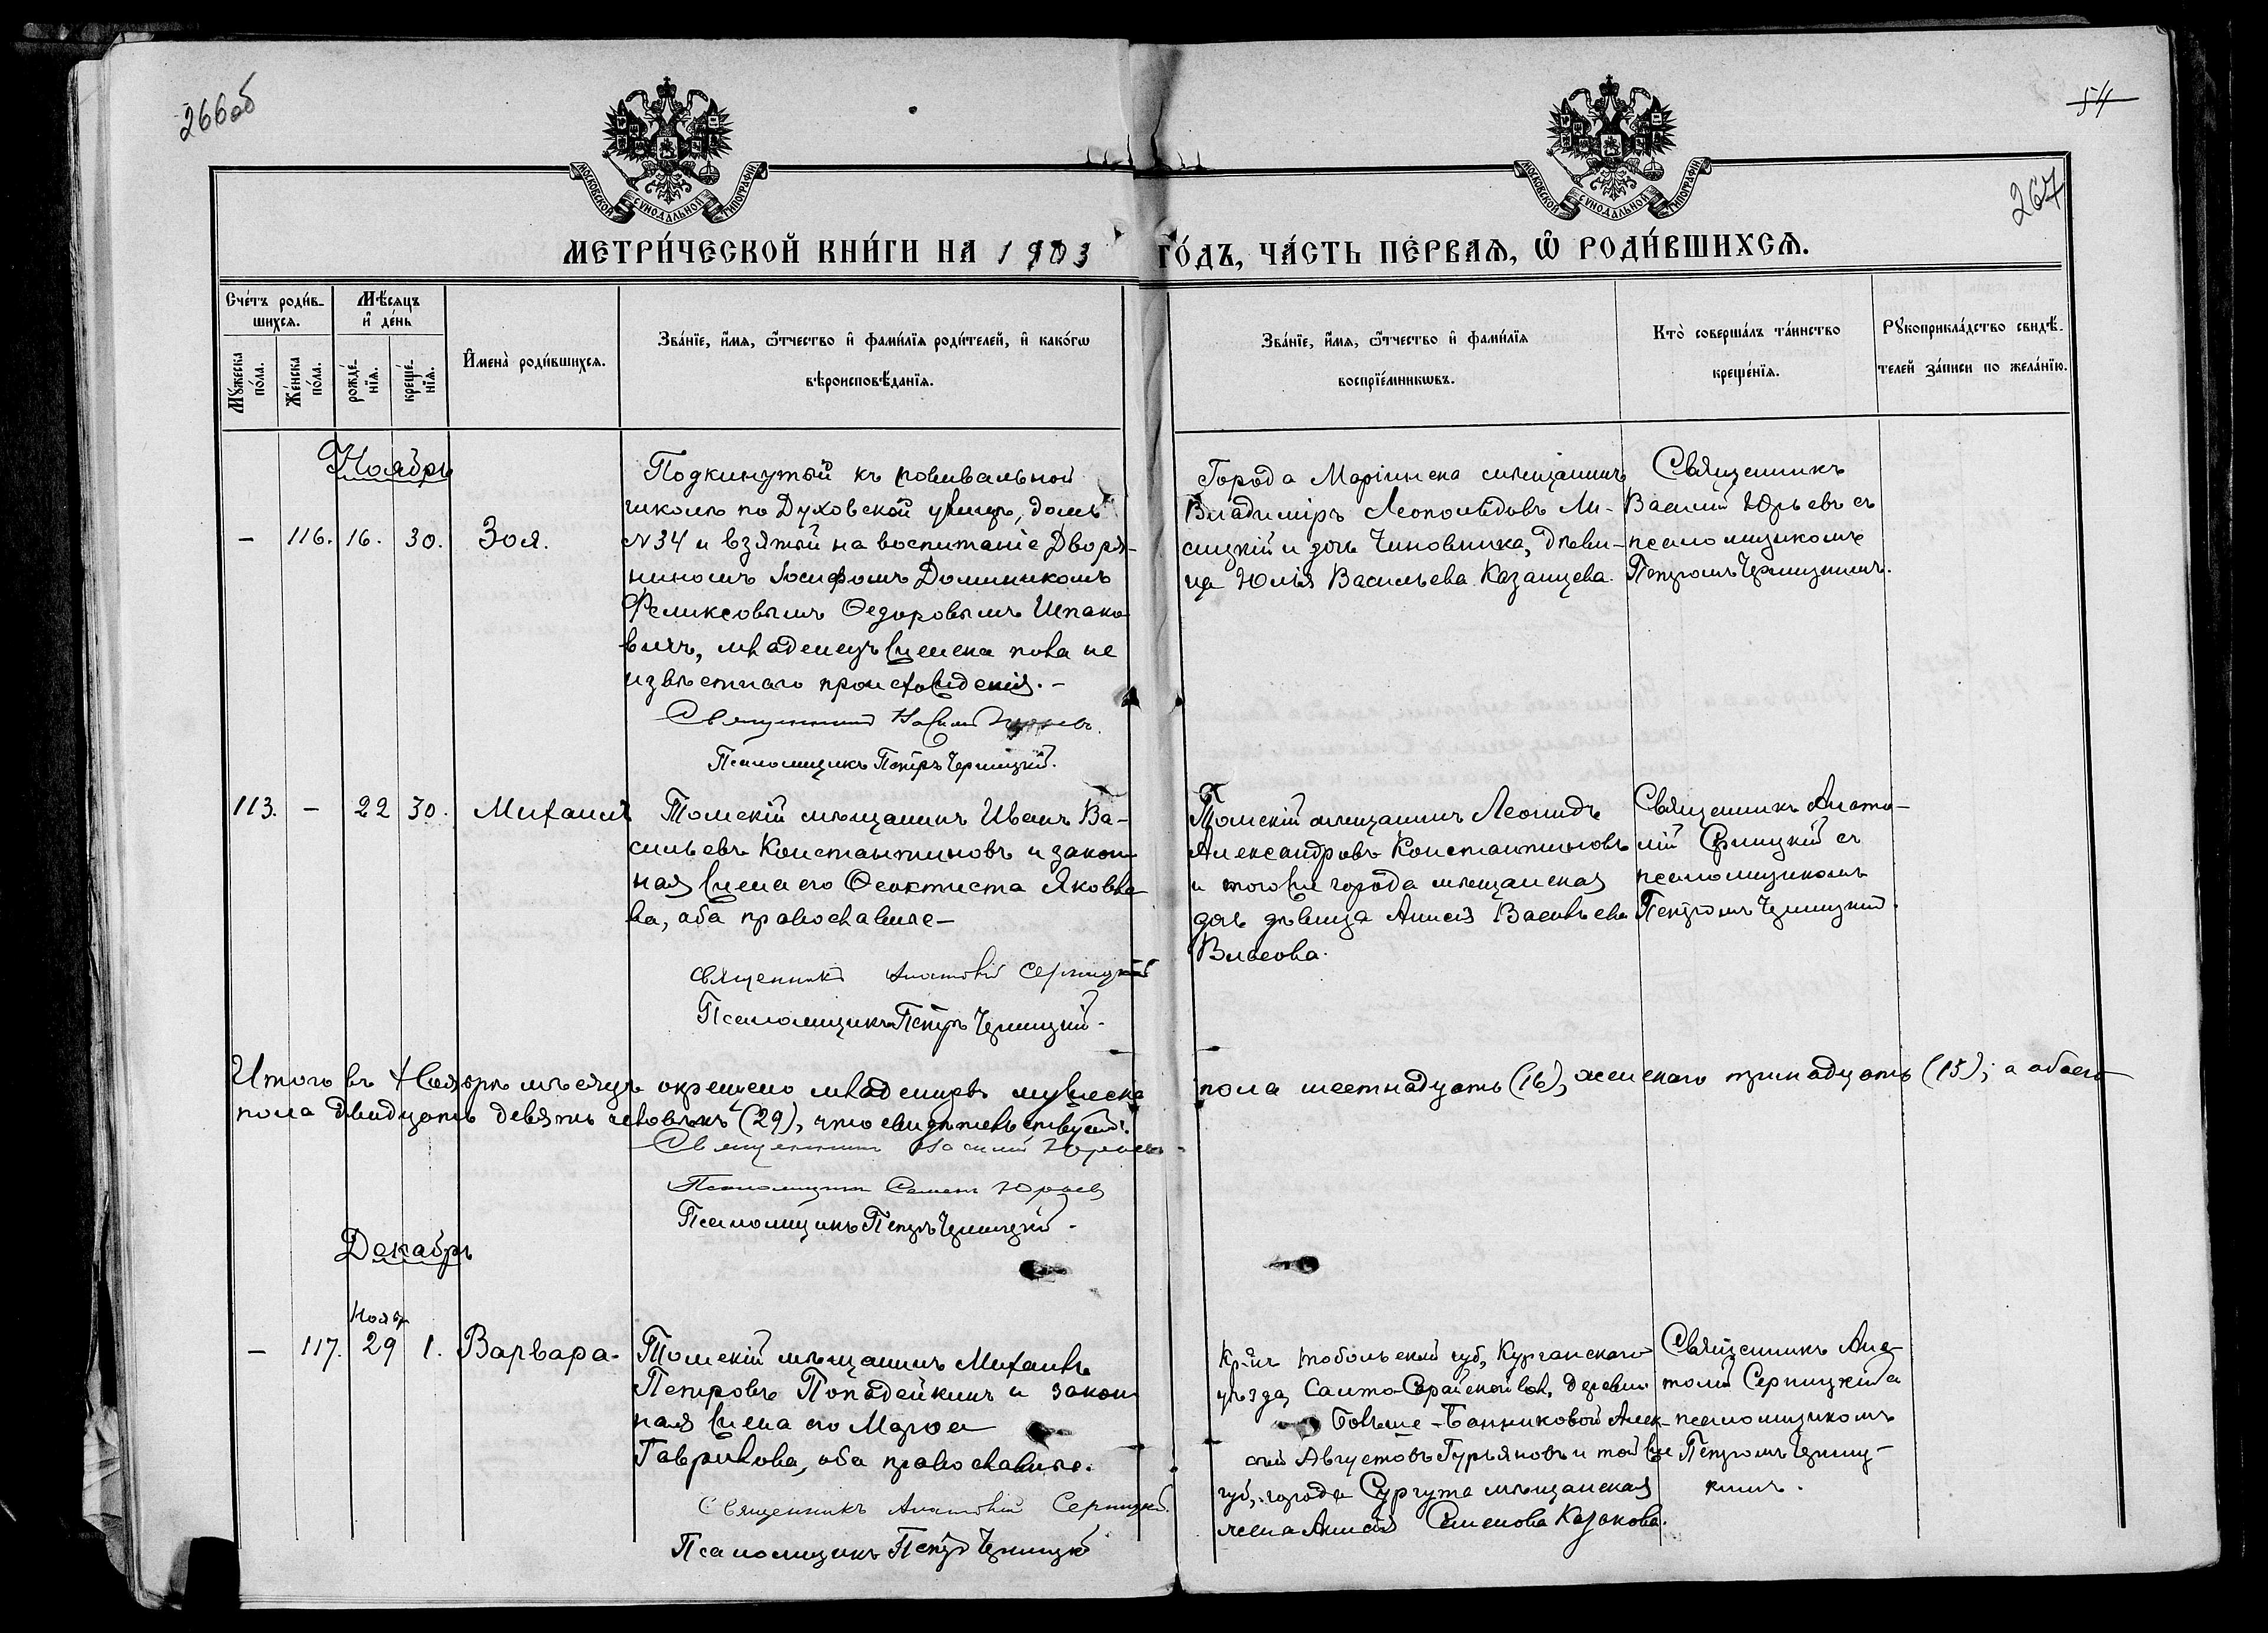 266об
54
267
МОСКОВСКОЙ СѴНОДАЛЬНОЙ ТИПОГРАФІИ
МОСКОВСКОЙ СѴНОДАЛЬНОЙ ТИПОГРАФІИ
МЕТРИ́ЧЕСКОЙ КНИ́ГИ НА 1903 ГО́ДЪ, ЧА́СТЬ ПЕ́РВАѦ, Ѡ҆ РОДИ́ВШИХСѦ.
Сче́тъ роди́в-
шихсѧ.
Мꙋ́жеска по́ла.
Же́нска по́ла.
Мѣ́сѧцъ
и҆ де́нь
рожде́-нїѧ.
креще́-нїѧ.
И҆мена̀ роди́вшихсѧ.
Зва́нїе, и҆́мѧ, ѻ҆́тчество и҆ фами́лїѧ роди́телей, и҆ како́гѡ
вѣроисповѣ́данїѧ.
Зва́нїе, и҆́мѧ, ѻ҆́тчество и҆ фами́лїѧ
воспрїе́мникѡвъ.
Кто̀ соверша́лъ та́инство
креще́нїѧ.
Рꙋкоприкла́дство свидѣ́-
телей за́писи по жела́нїю.
Ноябрь
– 116. 16. 30. Зоя.
Подкинутый къ повивальной
школѣ по Духовской улицѣ, домъ
№ 34 и взятый на воспитаніе Дворя-
ниномъ Іосифомъ Доминикомъ
Феликсовымъ Ѳедоровымъ Шпако-
вичъ, младенецъ женска пола не
извѣстнаго происхожденія. –
Священникъ Василій Юрьевъ.
Псаломщикъ Петръ Черницкій.
Города Маріинска мѣщанинъ
Владиміръ Леопольдовъ Ли-
сицкій и дочь Чиновника, дѣви-
ца Юлія Васильева Казанцева.
Священникъ
Василій Юрьевъ съ
псаломщикомъ
Петромъ Черницкимъ.
113. – 22 30. Михаилъ
Томскій мѣщанинъ Иванъ Ва-
сильевъ Константиновъ и закон-
ная жена его Ѳеоктиста Яковле-
ва, оба православные –
Священникъ Анатолій Серницкій
Псаломщикъ Петръ Черницкій.
Томскій мѣщанинъ Леонидъ
Александровъ Константиновъ
и того же города мѣщанская
дочь дѣвица Анисія Васильева
Власова.
Священникъ Анато-
лій Серницкій съ
псаломщикомъ
Петромъ Черницкій.
Итого въ Ноябрѣ мѣсяцѣ окрещено младенцевъ мужеска пола шестнадцать (16), женскаго тринадцать (13), а обоего
пола двадцать девять человѣкъ (29), что свидѣтельствуемъ:
Священникъ Василій Юрьевъ
Псаломщикъ Семенъ Юрьевъ
Псаломщикъ Петръ Черницкій.
Декабрь
Нояб
– 117. 29 1. Варвара.
Томскій мѣщанинъ Михаилъ
Петровъ Попадейкинъ и закон-
ная жена его Марѳа
Гаврилова, оба православные.
Священникъ Анатолій Серницкій.
Псаломщикъ Петръ Черницкій
Кр-нъ Тобольской губ, Курганскаго
уѣзда, Салто-Сарайской вол, деревни
Больше-Банниковой Алек-
сѣй Августовъ Гурьяновъ и той же
губ, города Сургута мѣщанская
жена Анисія Семенова Казакова.
Священникъ Ана-
толій Серницкій съ
псаломщикомъ
Петромъ Черниц-
кимъ.